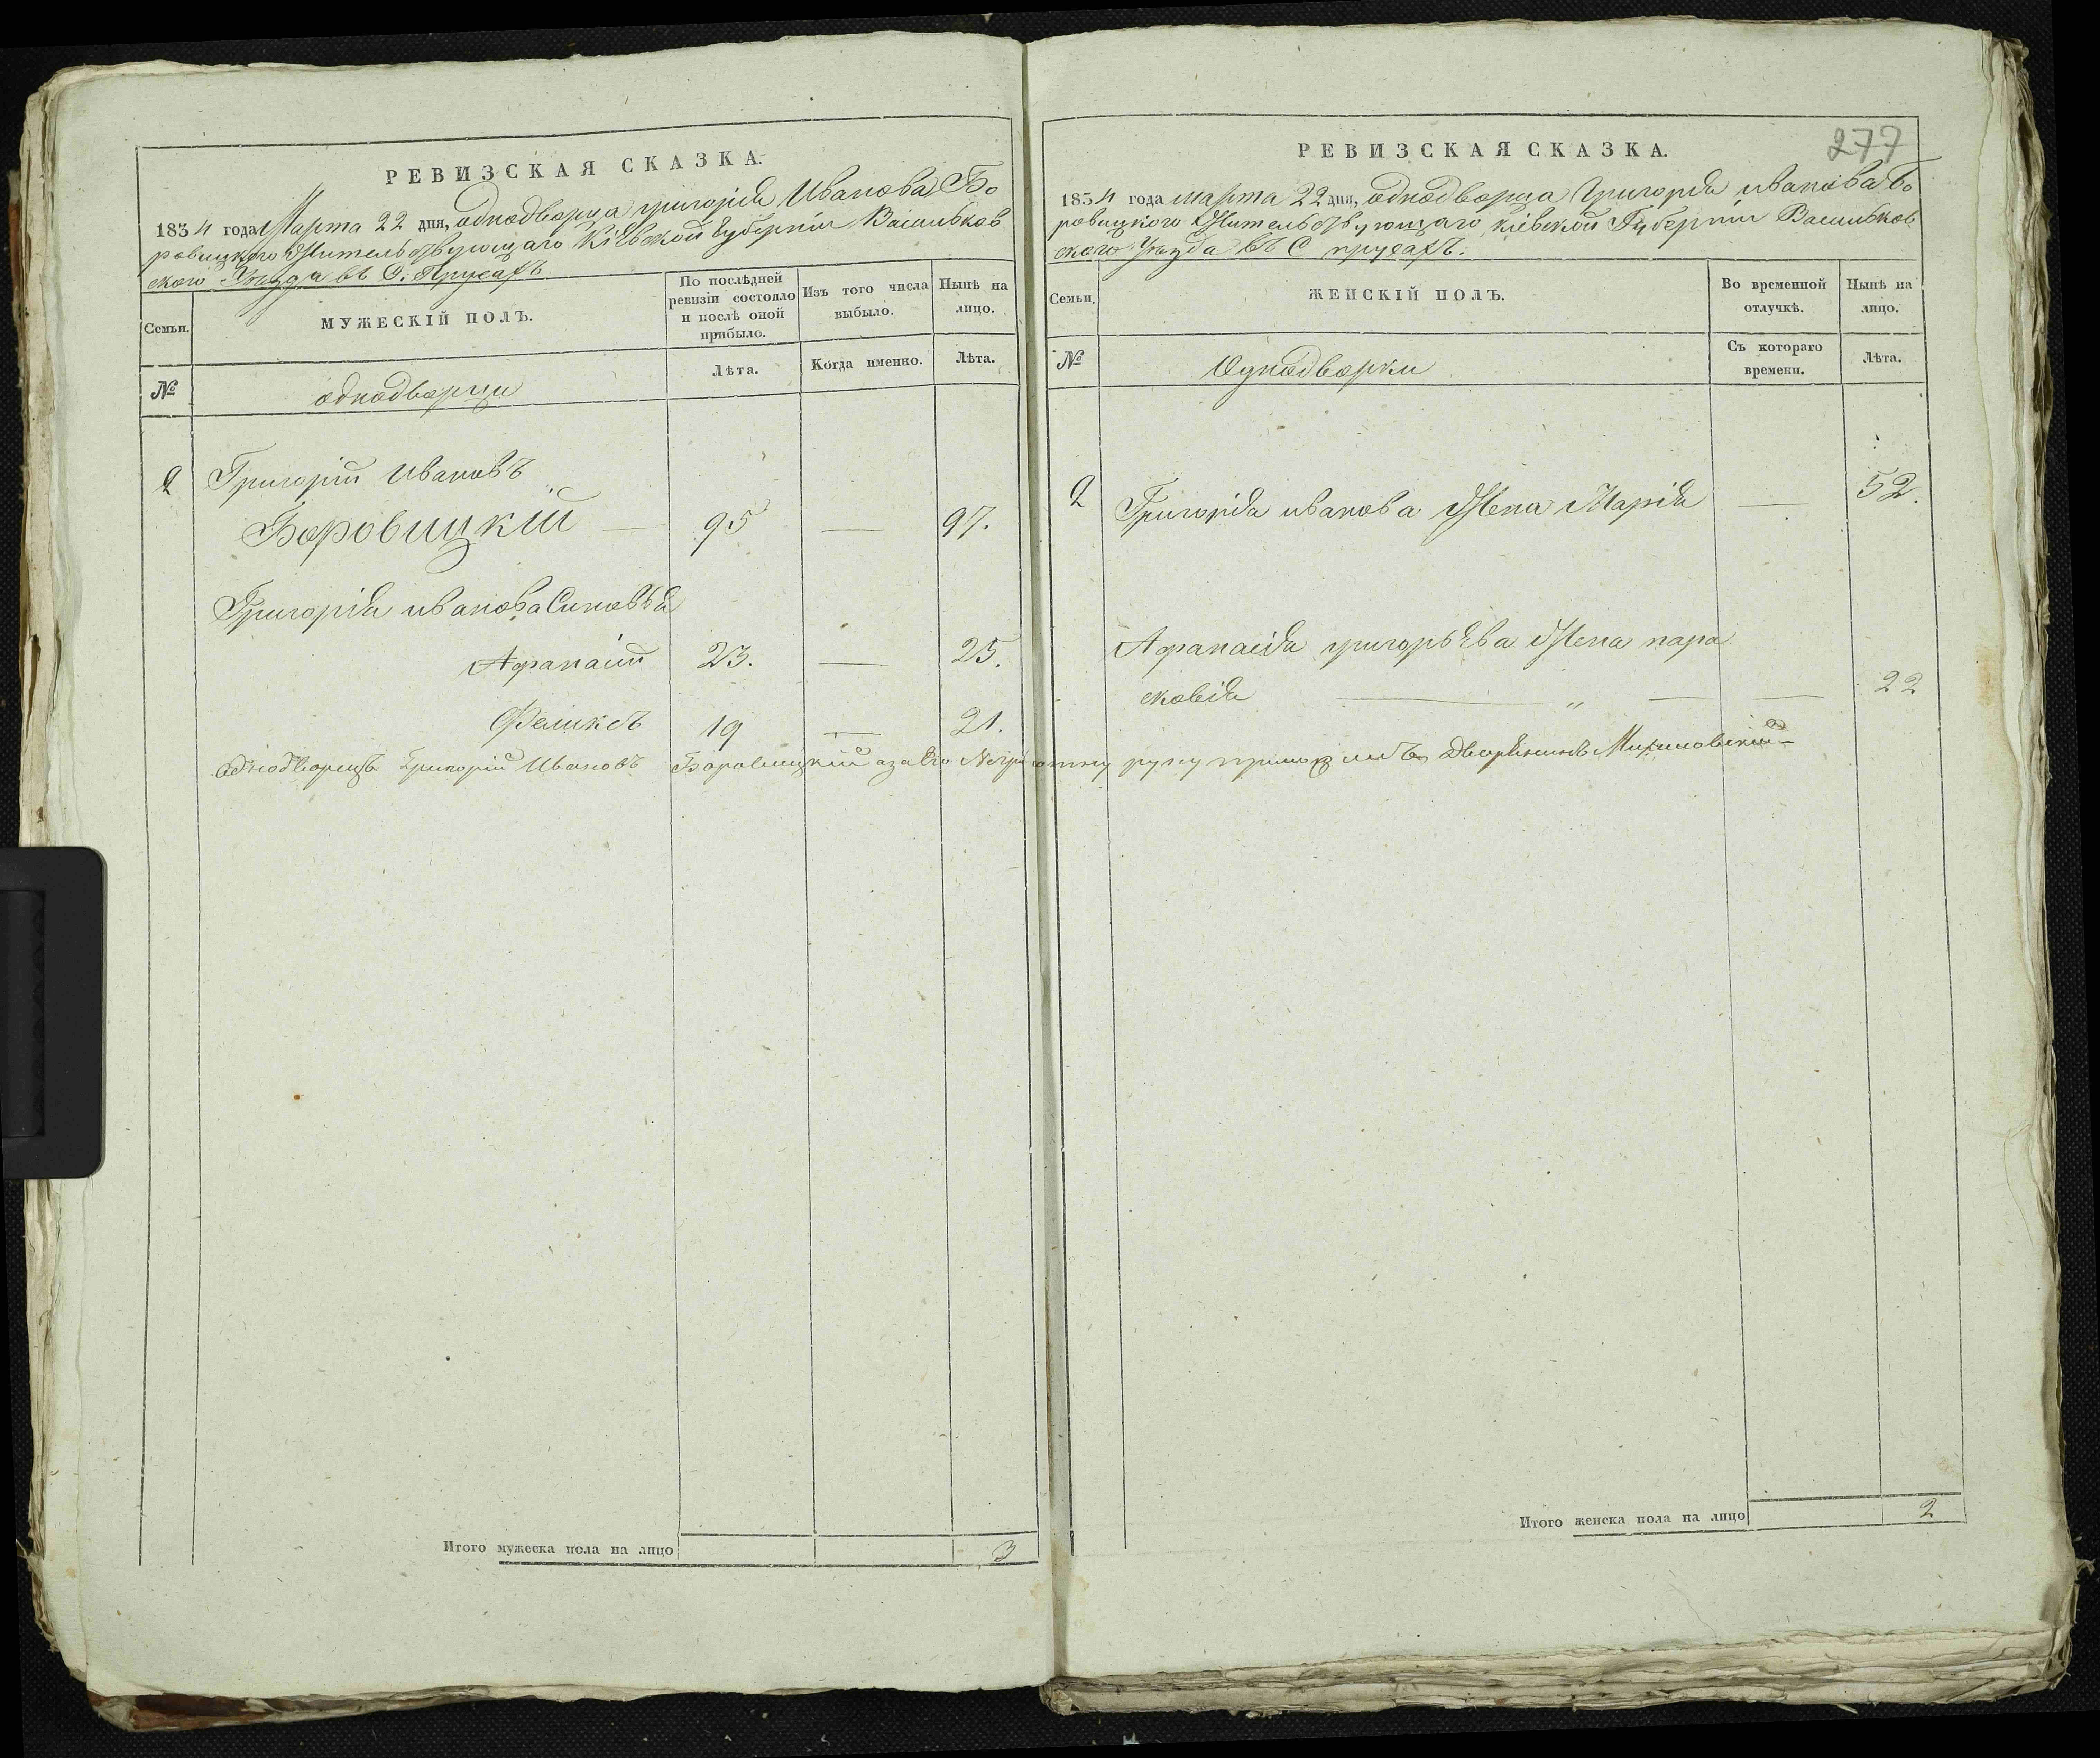 РЕВИЗСКАЯ СКАЗКА.
1834 года Марта 22 дня, однодворца григорія Иванова Бо
ровицкого Жительствующаго Кіевской губерніи Васильков
ского Уѣзда въ С. Прусахъ
Семьи.
МУЖЕСКІЙ ПОЛЪ.
По послѣдней ревизіи состояло и послѣ оной прибыло.
Изъ того числа выбыло.
Нынѣ на лицо.
№
однодворци
Лѣта.
Когда именно.
Лѣта.
2 Григорій Ивановъ
Боровицкій — 95 — 97.
Григорія иванова Синовья
Афанасій 23. — 25.
Феликсъ 19 — 21.
однодворецъ Григорій Ивановъ Боровицкій а за его Негра мотну руку приложилъ Дворянинъ
Итого мужеска пола на лицо 3
277
РЕВИЗСКАЯ СКАЗКА.
1834 года марта 22 дня, однодворца Григорія иванова бо
ровицкого Жительствующаго кіевской Губерніи Васильков
ского Уѣзда въ С прусахъ.
Семьи.
ЖЕНСКІЙ ПОЛЪ.
Во временной отлучкѣ.
Нынѣ на лицо.
№
Однодворки
Съ котораго времени.
Лѣта.
2 Григорія иванова Жена Марія — 52.
Афанасія григорьева Жена пара
сковія — „ — — 22
Итого женска пола на лицо 2